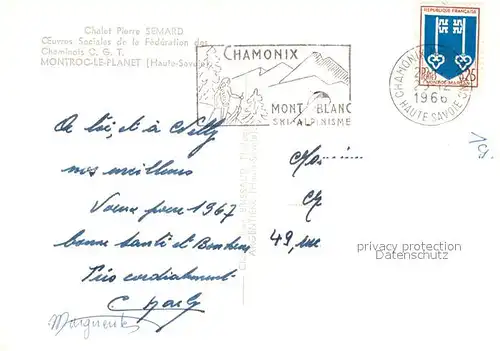 Chalet Pierre SEMARD
Œuvres Sociales de la Fédération des
Cheminots C. G. T.
MONTROC-LE-PLANET (Haute-Savoie)
REPUBLIQUE FRANÇAISE
0,25
MONT-DE-MARSAN
CHAMONIX
MONT BLANC
SKI-ALPINISME
CHAMONIX
1966
HAUTE SAVOIE
A toi, et à Nelly
nos meilleurs
Vœux pour 1967
bonne santé et Bonheur
Très cordialement
Charly
Marguerite
49, rue
privacy protection
Datenschutz